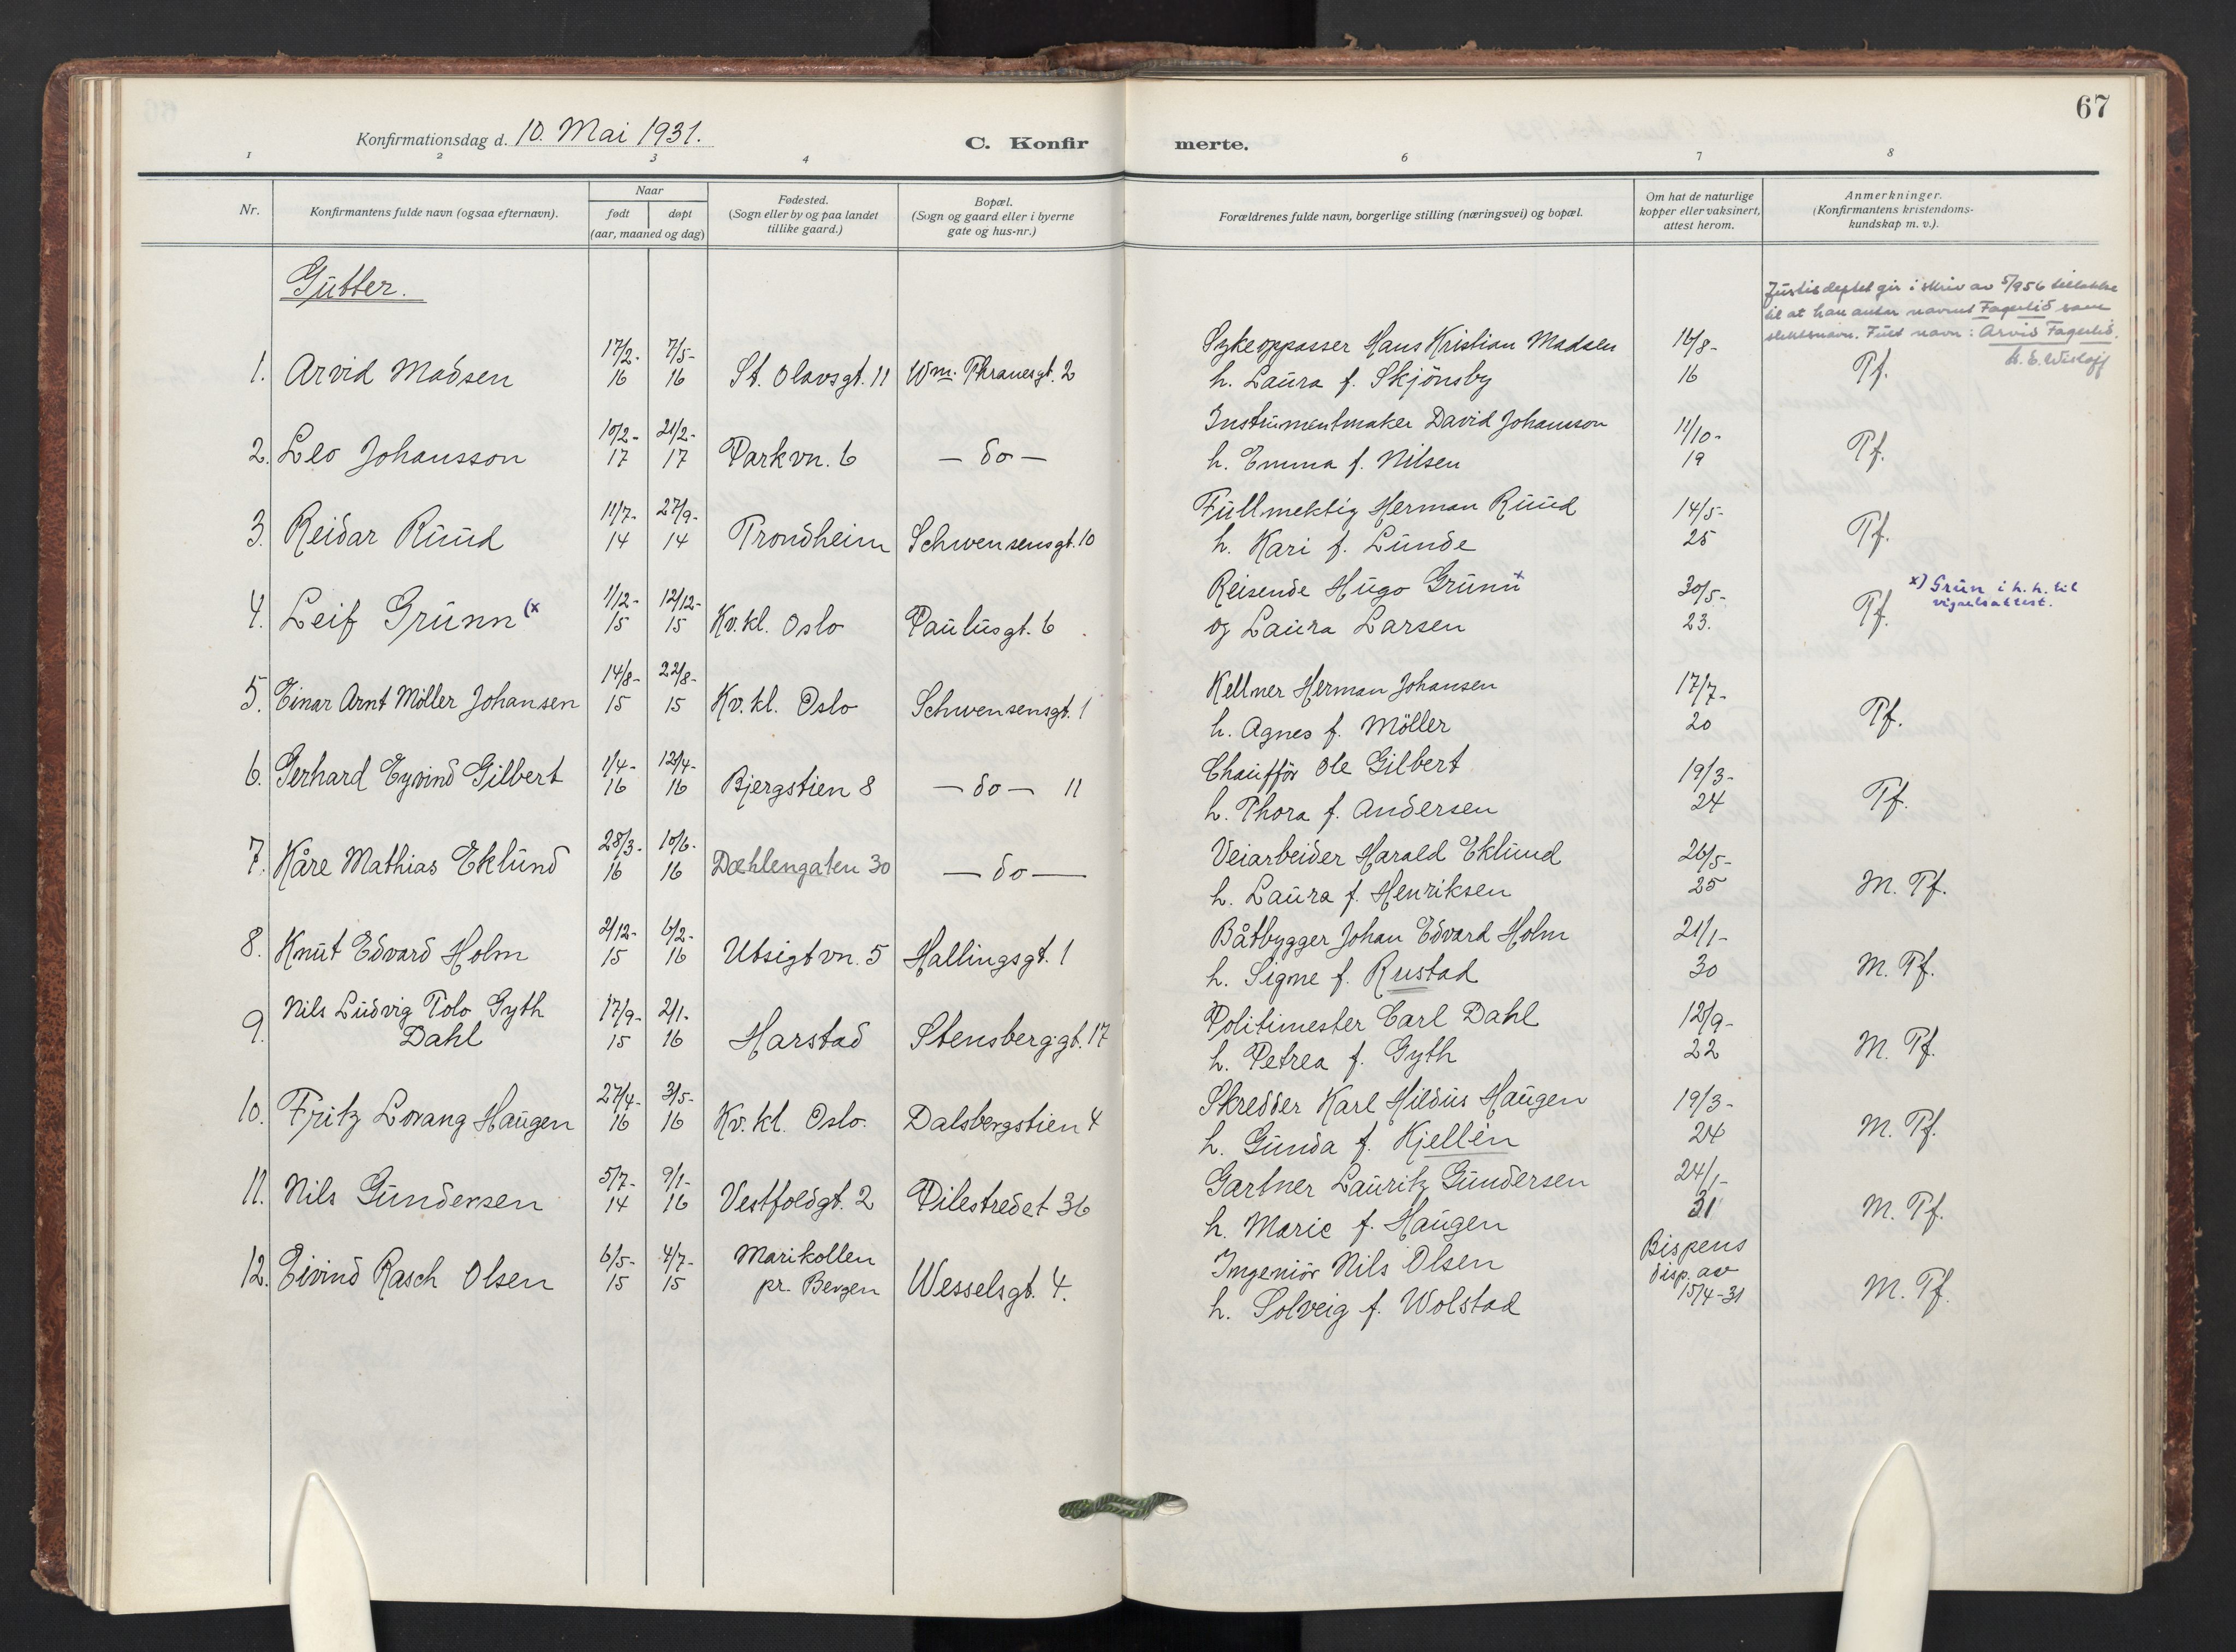 67
Konfirmationsdag d. 10. Mai 1931.
C. Konfir merte.
1 2 3 4 6 7 8
Nr.
Konfirmantens fulde navn (ogsaa efternavn).
Naar
født døpt
(aar, maaned og dag)
Fødested.
(Sogn eller by og paa landet
tillike gaard.)
Bopæl.
(Sogn og gaard eller i byerne
gate og hus-nr.)
Forældrenes fulde navn, borgerlige stilling (næringsvei) og bopæl.
Om hat de naturlige
kopper eller vaksinert,
attest herom.
Anmerkninger.
(Konfirmantens kristendoms-
kundskap m. v.).
Gutter.
Justisdeptet gir i skriv av 5/956 tillatelse
til at han antar navnet Fagerlid som
slektsnavn. Fullt navn: Arvid Fagerlid.
17/2- 7/5- Sykeopasser Hans Kristian Madsen 16/8-
1. Arvid Madsen 16 16 St. Olavsgt. 11 Wm. Thranesgt. 2 h. Laura f. Skjönsby 16 Tf.
10/2- 21/2- Instrumentmaker David Johansson 11/10-
2. Leo Johansson 17 17 Parkvn. 6 — do — h. Emma f. Nilsen 19 Tf.
11/7- 27/9- Fullmektig Herman Ruud 14/5-
3. Reidar Ruud 14 14 Trondheim Schwensensgt. 10 h. Kari f. Lunde 25 Tf.
1/12- 12/12- Reisende Hugo Grünn x 30/5- x) Grün i h. h. til
vigselsattest.
4. Leif Grünn (x 15 15 Kv. kl. Oslo Paulusgt. 6 og Laura Larsen 23. Tf.
14/8- 22/8- Kellner Herman Johansen 17/7-
5. Einar Arnt Möller Johansen 15 15 Kv. kl. Oslo Schwensensgt. 1 h. Agnes f. Möller 20 Tf.
1/4- 12/4- Chaufför Ole Gilbert 19/3-
6. Gerhard Eyvind Gilbert 16 16 Bjergstien 8 — do — 11 h. Thora f. Andersen 24 Tf.
28/3- 10/6- Veiarbeider Harald Eklund 26/5-
7. Kåre Mathias Eklund 16 16 Dæhlengaten 30 — do — h. Laura f. Henriksen 25 M. Tf.
2/12- 6/2- Båtbygger Johan Edvard Holm 21/1-
8. Knut Edvard Holm 15 16 Utsigtvn. 5 Hallingsgt. 1 h. Signe f. Rustad 30 M. Tf.
Nils Ludvig Tolo Gyth 17/9- 2/1- Politimester Carl Dahl 12/9-
9. Dahl 15 16 Harstad Stensberggt. 17 h. Petrea f. Gyth 22 M. Tf.
27/4- 3/5- Skredder Karl Hildus Haugen 19/3-
10. Fritz Lorang Haugen 16 16 Kv. kl. Oslo. Dalsbergstien 4 h. Gunda f. Kjellén 24 M. Tf.
5/7- 9/1- Gartner Lauritz Gundersen 24/1-
11. Nils Gundersen 14 16 Vestfoldgt. 2 Pilestredet 36 h. Marie f. Haugen 31 M. Tf.
6/5- 4/7- Marikollen Ingeniör Nils Olsen Bispens
disp. av
12. Eivind Rasch Olsen 15 15 pr. Bergen Wesselsgt. 4. h. Solveig f. Wolstad 15/4-31 M. Tf.